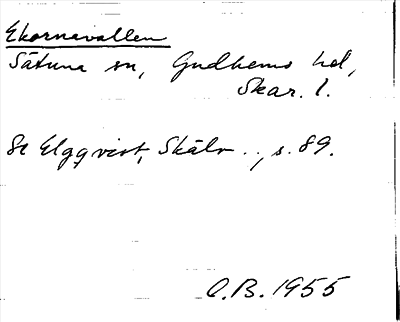 Ekornavallen
Sätuna sn, Gudhems hd,
Skar. l.
Se Elgqvist, Skälv . . , s. 89.
O.B. 1955